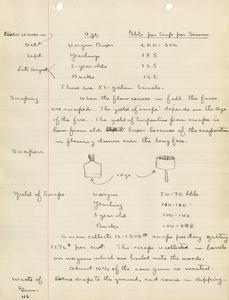 Age Bbls per Crop per Season
Oct. Virgin Boxes 250-300
Sept. Yearlings 185
Late August 3-year olds 125
Bucks 125
These are 52-gallon barrels.
Scraping When the flow ceases in fall the faces
are scraped. The yield of scrape depends on the Age
of the face. The yield of turpentine from scrape is
low from old boxes because of the evaporation
in flowing down over the long face.
Scrapers
edge
Yield of Scrape Virgin 50-70 bbls
Yearling
3 year old
Bucks
A man collects 12-1500 # scrape per day getting
per cwt. The scrape is collected in barrels
on wagons which are hauled into the woods.
About 10% of the raw gum is wasted.
Waste of Some drops to the ground, and some is chipping.
Gum.